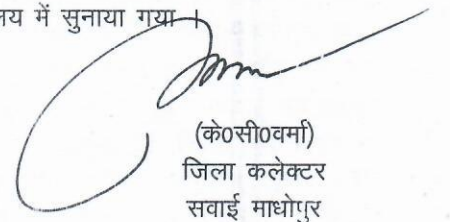 में सुनाया गया ।
(के0सी0वर्मा)
जिला कलेक्टर
सवाई माधोपुर